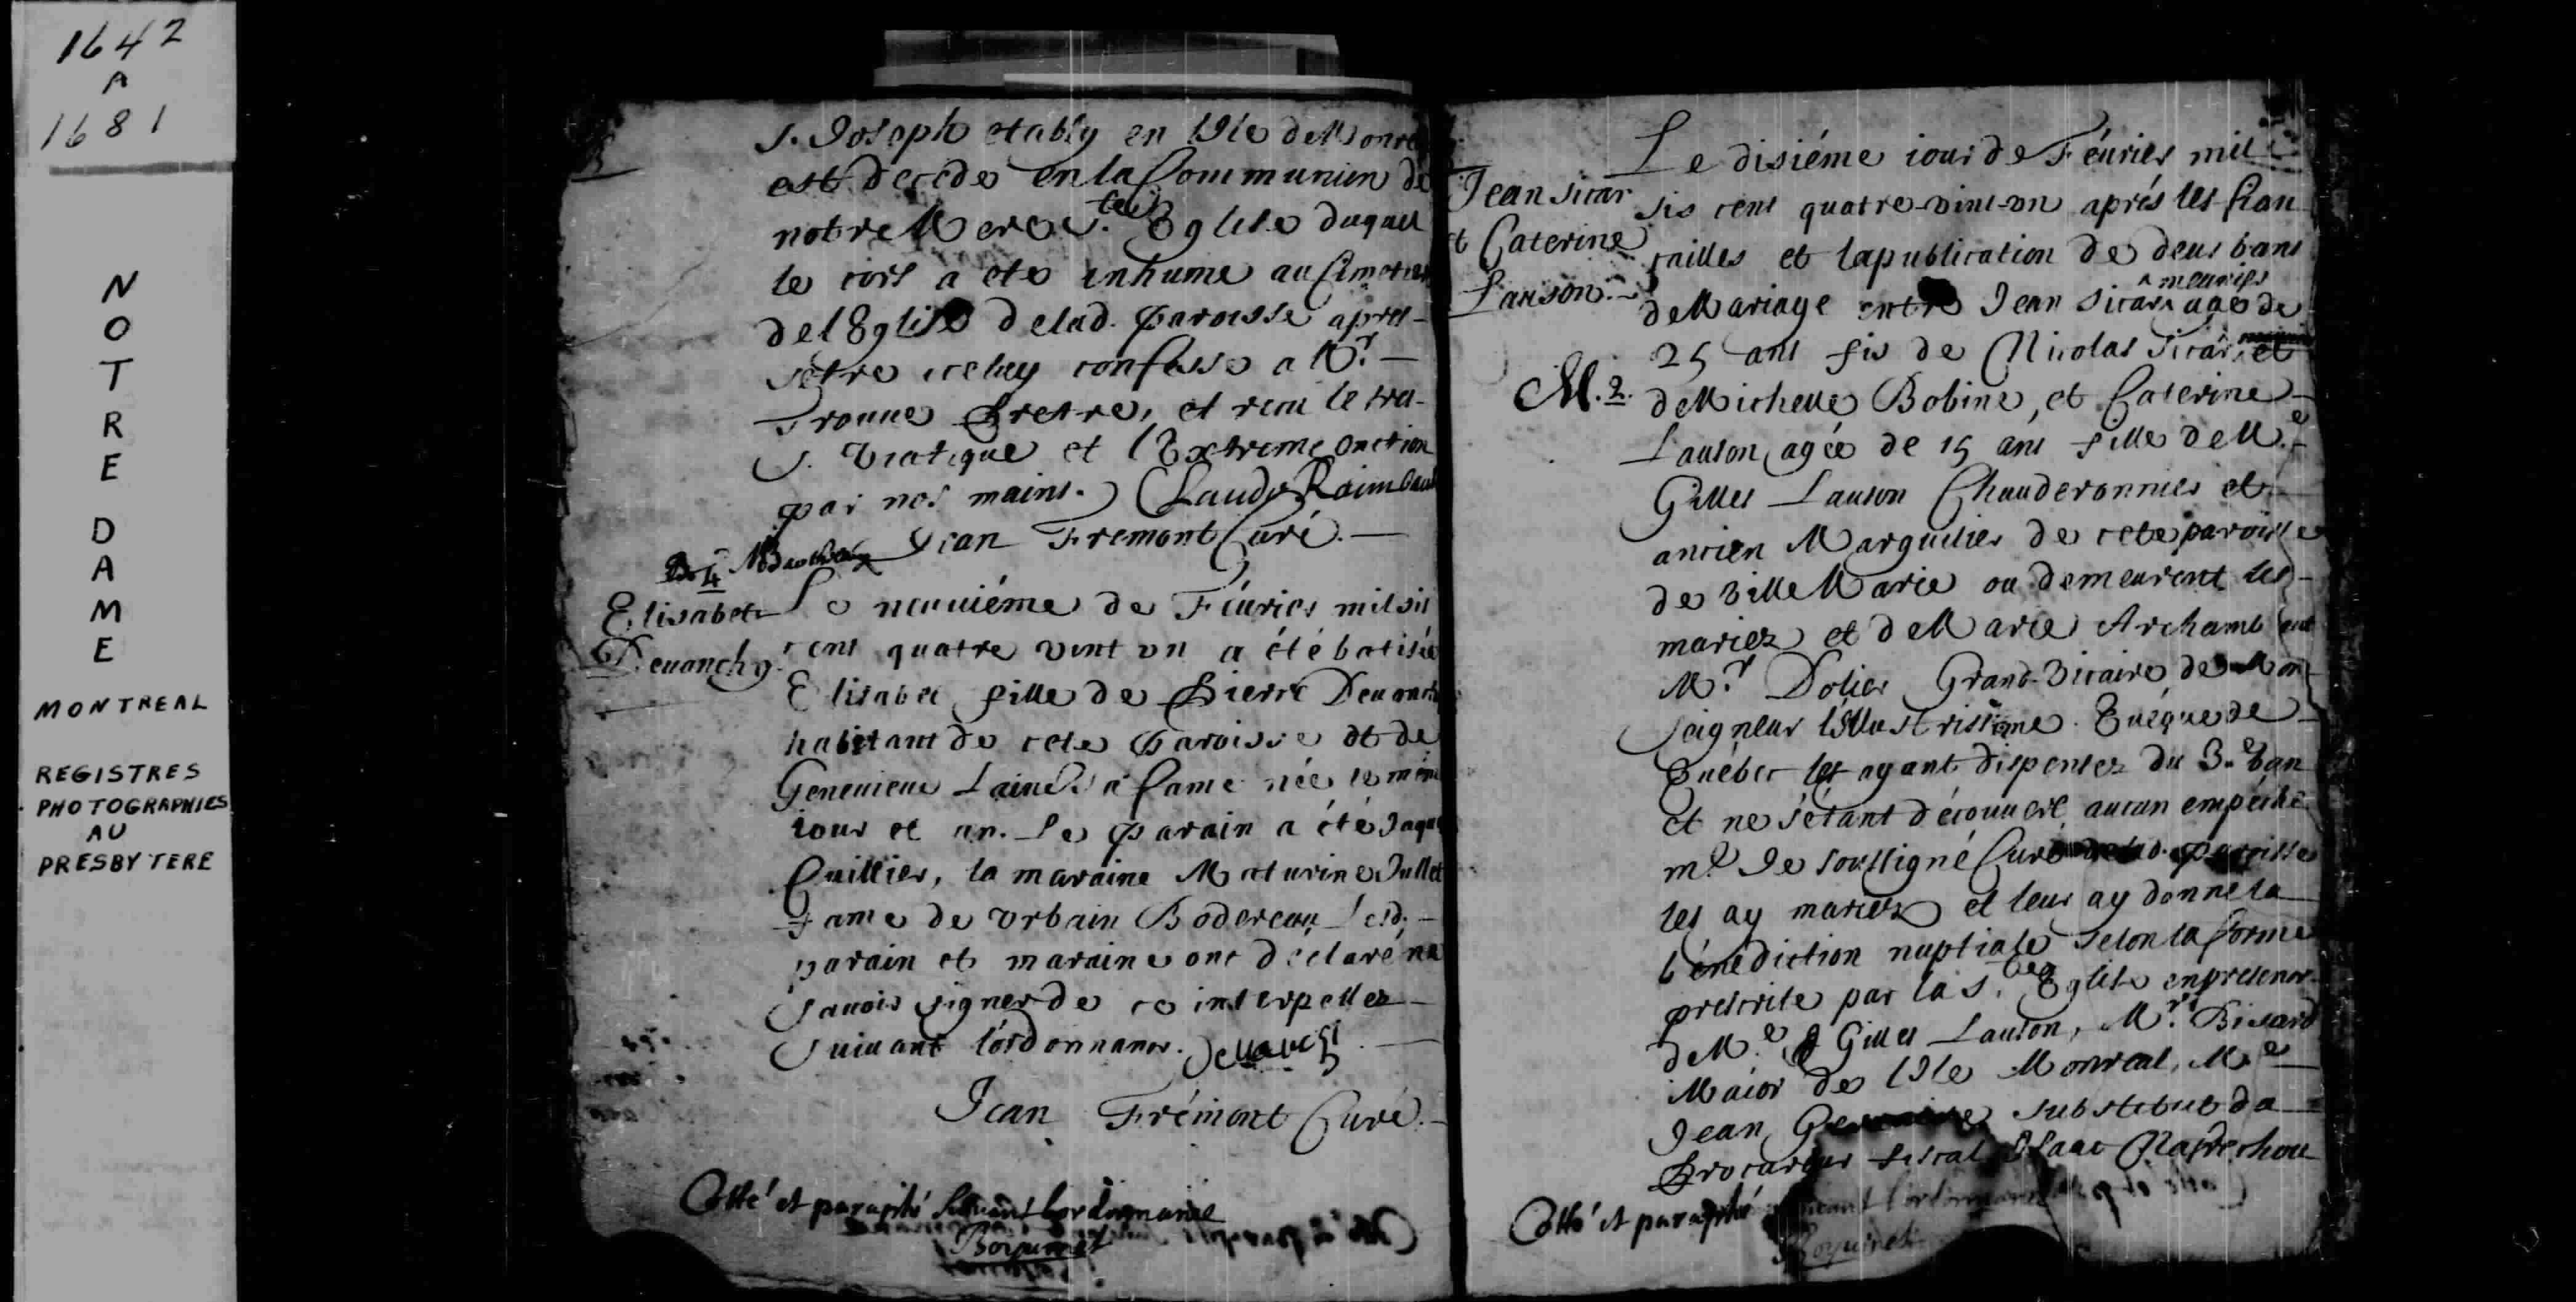 1642
A
1681
NOTRE
DAME
MONTREAL
REGISTRES
PHOTOGRAPHIES
AU
PRESBYTERE
S. Joseph etably en l'Ile de Monre
est decede en la Communion de
notre Mere S.te Eglise duquel
le cors a ete inhume au Cimetier
de l'Eglise de lad. paroisse apres
s'etre iceluy confesse a Mr.
Pretre, et recu le tres
S. Viatique et l'Extreme onction
par nos mains. Claude Raimbaut
Jean Fremont Curé.
B. 4
Elisabet
Devanchy
Le neuuiéme de Féurier mil sis
cent quatre vint vn a été batisée
Elisabet fille de Pierre Devanch
habitant de cete Paroisse et de
Geneuieue Lainé sa fame née le mème
iour et an. Le parain a été Jaque
Cuillier, la maraine Maturine Jullet
fame de Vrbain Bodereau Lesd.
parain et maraine ont déclaré ne
sauoir signer de ce interpellez
suiuant l'ordonnance. Devanchy
Jean Frémont Curé.
Cotté et paraphé suivant l'ordonnance
Bouquinet
Jean Sicar
et Caterine
Lauson.
M. 2.
Le disiéme iour de Féurier mil
sis cent quatre-vint-vn aprés les fian
cailles et la publication de deus bans
de Mariage entre Jean Sicar ^ meunier agé de
25 ans fis de Nicolas Sicar et
de Michelle Bobine, et Caterine
Lauson agée de 15 ans fille de M.e
Gilles Lauson Chauderonnier et
ancien Marguilier de cete paroisse
de Ville Marie ou demeurent les
mariez et de Marie Archambaut
M.r Dolier Grand-Vicaire de Mon
seigneur l'Illustrissime Euéque de
Québec les ayant dispensez du 3.e ban
et ne s'étant découuert aucun empéche
m.t Je soussigné Curé de lad. paroisse
les ay mariez et leur ay donné la
bénédiction nuptiale selon la forme
prescrite par la S.te Eglise en presence
de M.e Gilles Lauson, M.r Bisard
Maior de l'Ile Monreal, M.e
Jean substitut du
Procureur fiscal Isaac Nafrechou
Cotté et paraphé suivant l'ordonnance
Bouquinet